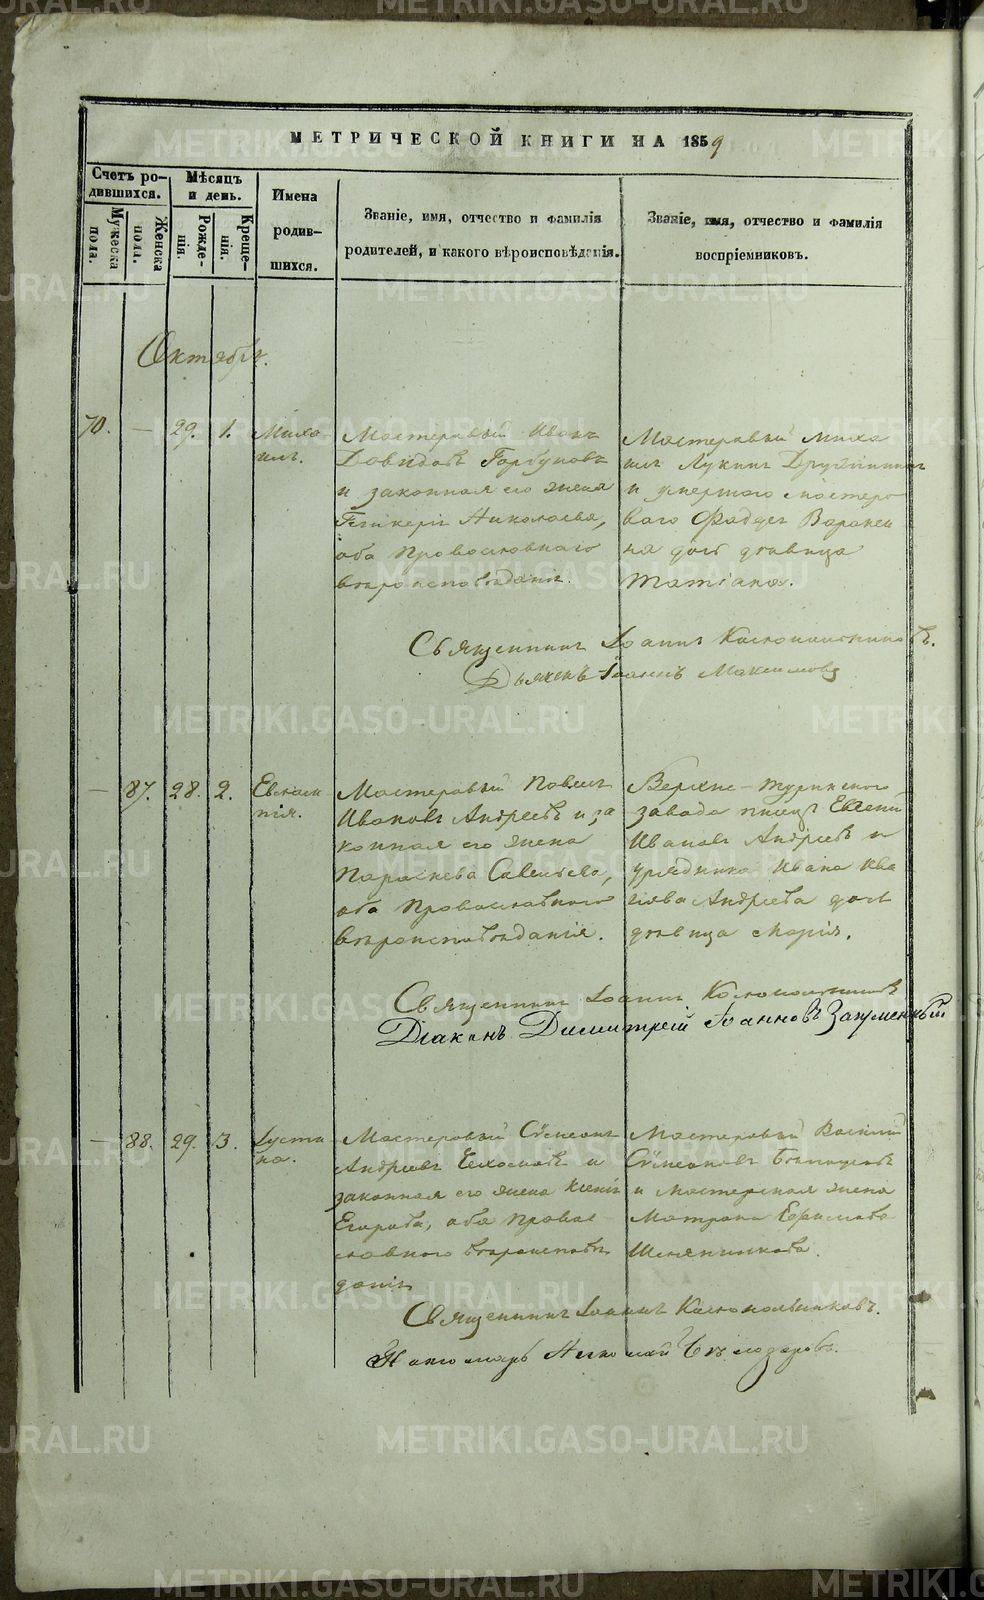 МЕТРИЧЕСКОЙ КНИГИ НА 1859
Счетъ ро-
дившихся.
Мужеска
пола.
Женска
пола.
Мѣсяцъ
и день.
Рожде-
нія.
Креще-
нія.
Имена
родив-
шихся.
Званіе, имя, отчество и фамилія
родителей, и какого вѣроисповѣданія.
Званіе, имя, отчество и фамилія
воспріемниковъ.
Октябрь.
70. — 29. 1. Миха-
илъ.
Мастеровый Иванъ
Давидовъ Горбуновъ
и законная его жена
Гликерія Николаева,
оба православнаго
вѣроисповѣданія.
Мастеровый Миха
илъ Лукинъ Дружининъ
и умершаго мастеро
ваго Фаддея Воронеи
на дочь дѣвица
Татіана.
Священникъ Іоаннъ
Дьяконъ Іоаннъ Максимовъ
— 87. 28. 2. Евлам
пія.
Мастеровый Павелъ
Ивановъ Андреевъ и за
конная его жена
Параскева Савельева,
оба православнаго
вѣроисповѣданія.
Верхне-туринскаго
завода писецъ Евгеній
Ивановъ Андреевъ и
урядника Ивана
Андреева дочь
дѣвица Марія.
Священникъ Іоаннъ
Діаконъ Димитрій Іоанновъ
— 88. 29. 3. Іусти
на.
Мастеровый Сѵмеонъ
Андреевъ и
законная его жена Ксенія
Егорова, оба право
славнаго вѣроисповѣ
данія
Мастеровый Василій
Сѵмеоновъ
и мастерская жена
Матрона Ефимова
Священникъ Іоаннъ
Пономарь Николай
METRIKI.GASO-URAL.RU